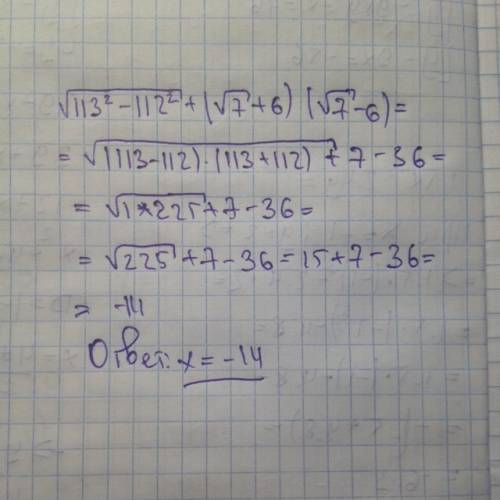 √113² - 112² + (√7 + 6) (√7 - 6) =
= √(113 - 112) · (113 + 112) + 7 - 36 =
= √1 * 225 + 7 - 36 =
= √225 + 7 - 36 = 15 + 7 - 36 =
= -14
Ответ: x = -14